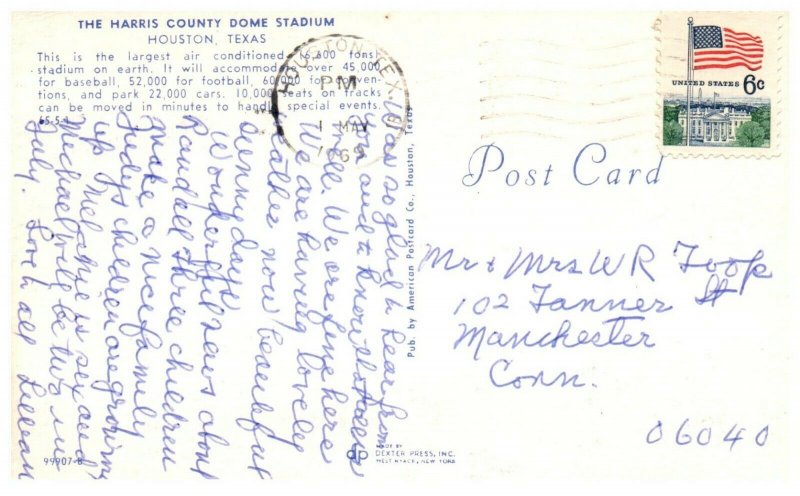 THE HARRIS COUNTY DOME STADIUM
HOUSTON, TEXAS
This is the largest air conditioned (6,600 tons)
stadium on earth. It will accommodate over 45,000
for baseball, 52,000 for football, 60,000 for conven-
tions, and park 22,000 cars. 10,000 seats on tracks
can be moved in minutes to handle special events.
65-5-1
HOUSTON, TEX
PM
1 MAY
1969
UNITED STATES 6c
Post Card
Was so glad to hear from
you and to know that all is
well. We are fine here
We are having lovely
weather now beautiful
sunny days
Wonderful news about
Rand all three children
make a nice family
Judy's children are growing
up. is six and
Michael will be two in
July. Love all Lillian
Mr + Mrs W R Toop
102 Tanner St
Manchester
Conn.
06040
Pub. by American Postcard Co., Houston, Texas
99907-B
dp
MADE BY
DEXTER PRESS, INC.
WEST NYACK, NEW YORK